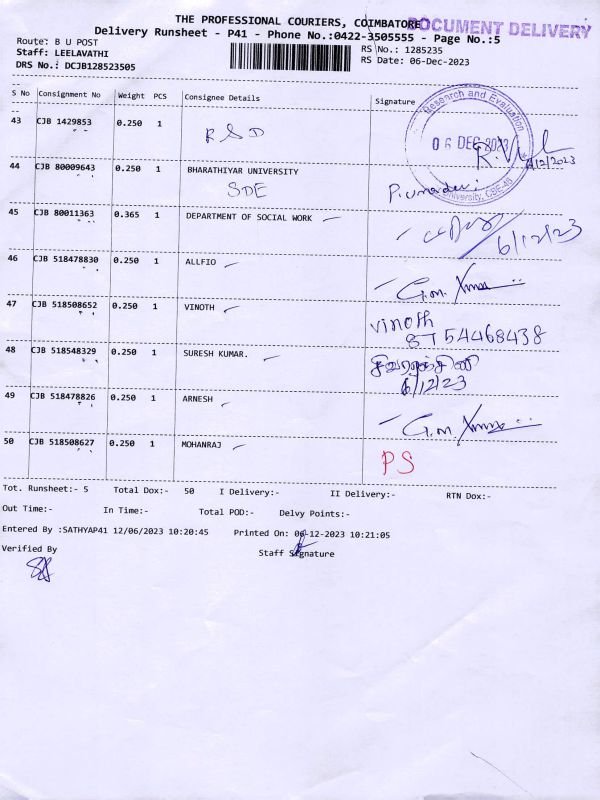 THE PROFESSIONAL COURIERS, COIMBATORE
DOCUMENT DELIVERY
Delivery Runsheet - P41 - Phone No.:0422-3505555 - Page No.:5
Route: B U POST
RS No.: 1285235
Staff: LEELAVATHI
RS Date: 06-Dec-2023
DRS No.: DCJB128523505
S No Consignment No Weight PCS Consignee Details Signature
Research and Evaluation
43 CJB 1429853 0.250 1 RSD
06 DEC 2023
6/12/2023
44 CJB 80009643 0.250 1 BHARATHIYAR UNIVERSITY
SDE P.umadevi
University, CBE-46
45 CJB 80011363 0.365 1 DEPARTMENT OF SOCIAL WORK
6/12/23
46 CJB 518478830 0.250 1 ALLFIO
G.m.
47 CJB 518508652 0.250 1 VINOTH
vinoth
8754468438
48 CJB 518548329 0.250 1 SURESH KUMAR.
6/12/23
49 CJB 518478826 0.250 1 ARNESH
G.m.
50 CJB 518508627 0.250 1 MOHANRAJ
PS
Tot. Runsheet:- 5 Total Dox:- 50 I Delivery:- II Delivery:- RTN Dox:-
Out Time:- In Time:- Total POD:- Delvy Points:-
Entered By :SATHYAP41 12/06/2023 10:20:45 Printed On: 06-12-2023 10:21:05
Verified By Staff Signature